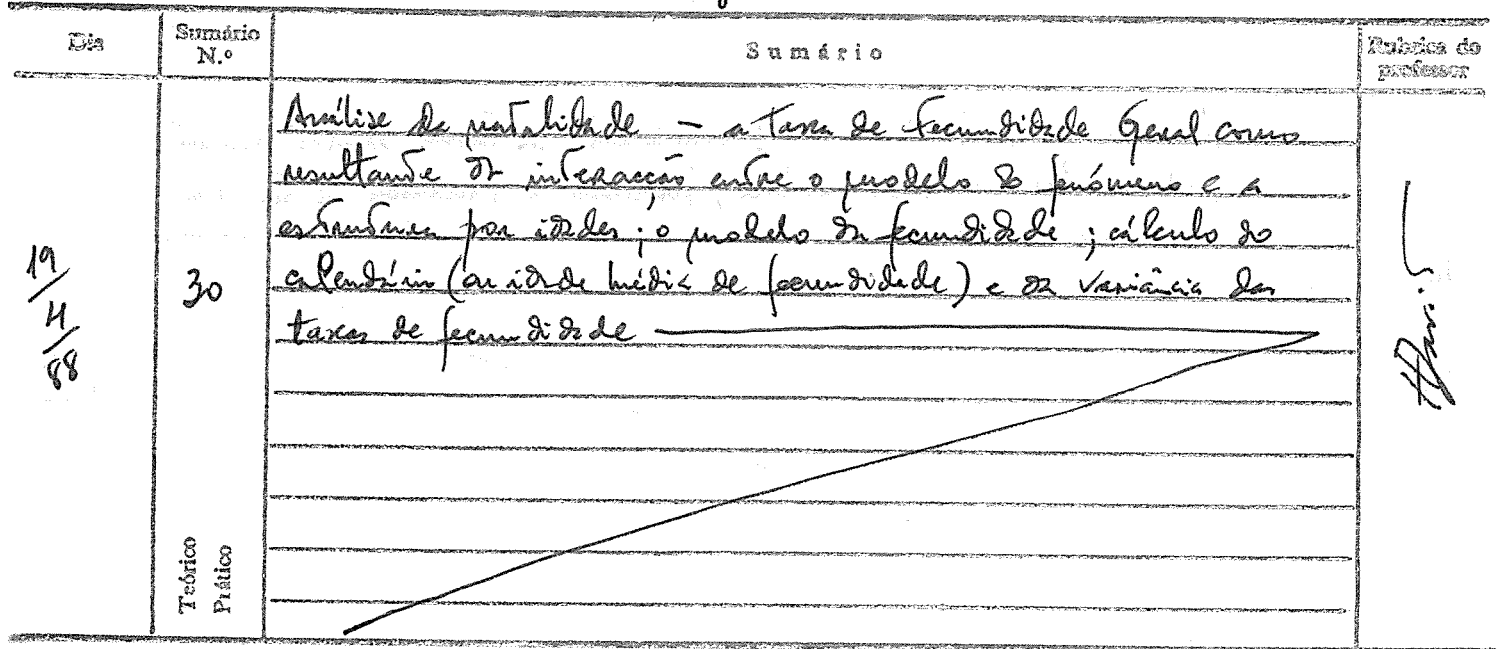 Dia
Sumário N.º
Sumário
Rubrica do professor
Análise da natalidade — a Taxa de Fecundidade Geral como
resultante da interacção entre o modelo do fenómeno e a
estrutura por idades; o modelo da fecundidade; cálculo do
calendário (ou idade média de fecundidade) e da variância das
taxas de fecundidade
19/4/88
30
Teórico
Prático